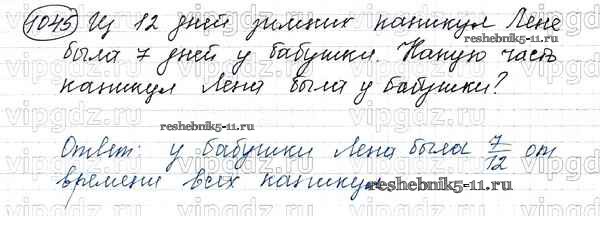 1045 Из 12 дней зимних каникул Лена
была 7 дней у бабушки. Какую часть
каникул Лена была у бабушки?
Ответ: у бабушки Лена была 7/12 от
времени всех каникул.
reshebnik5-11.ru
reshebnik5-11.ru
reshebnik5-11.ru
vipgdz.ru vipgdz.ru vipgdz.ru